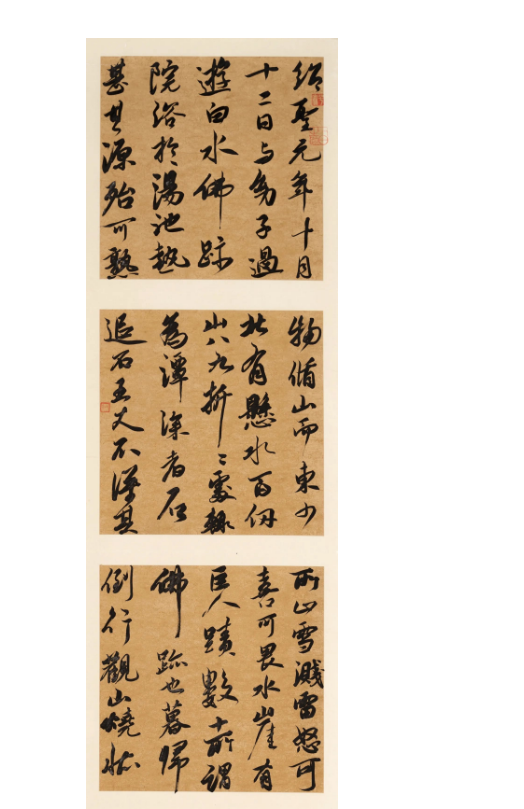 紹聖元年十月
十二日与幼子過
遊白水佛跡
院浴於湯池熱
甚其源殆可熟
物循山而東少
北有懸水百仞
山八九折〻處輒
為潭深者石
追石五丈不得其
所止雪濺雷怒可
喜可畏水崖有
巨人蹟數十所謂
佛跡也暮歸
倒行觀山燒壯